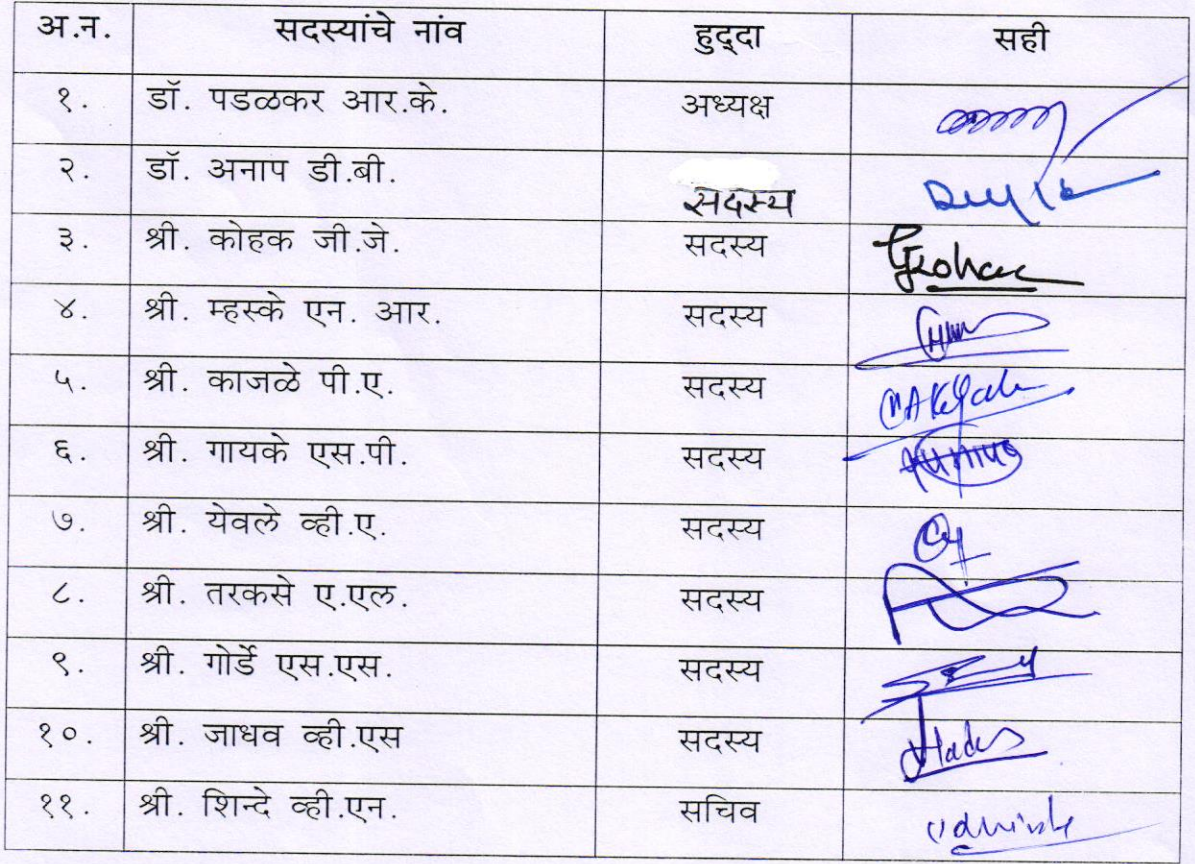 अ.न. सदस्यांचे नांव हुद्दा सही
१. डॉ. पडळकर आर.के. अध्यक्ष
२. डॉ. अनाप डी.बी. सदस्य
३. श्री. कोहक जी.जे. सदस्य
४. श्री. म्हस्के एन. आर. सदस्य
५. श्री. काजळे पी.ए. सदस्य
६. श्री. गायके एस.पी. सदस्य
७. श्री. येवले व्ही.ए. सदस्य
८. श्री. तरकसे ए.एल. सदस्य
९. श्री. गोर्डे एस.एस. सदस्य
१०. श्री. जाधव व्ही.एस सदस्य
११. श्री. शिन्दे व्ही.एन. सचिव